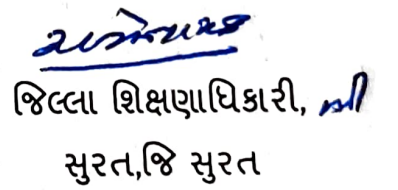 જિલ્લા શિક્ષણાધિકારી, શ્રી
સુરત,જિ સુરત